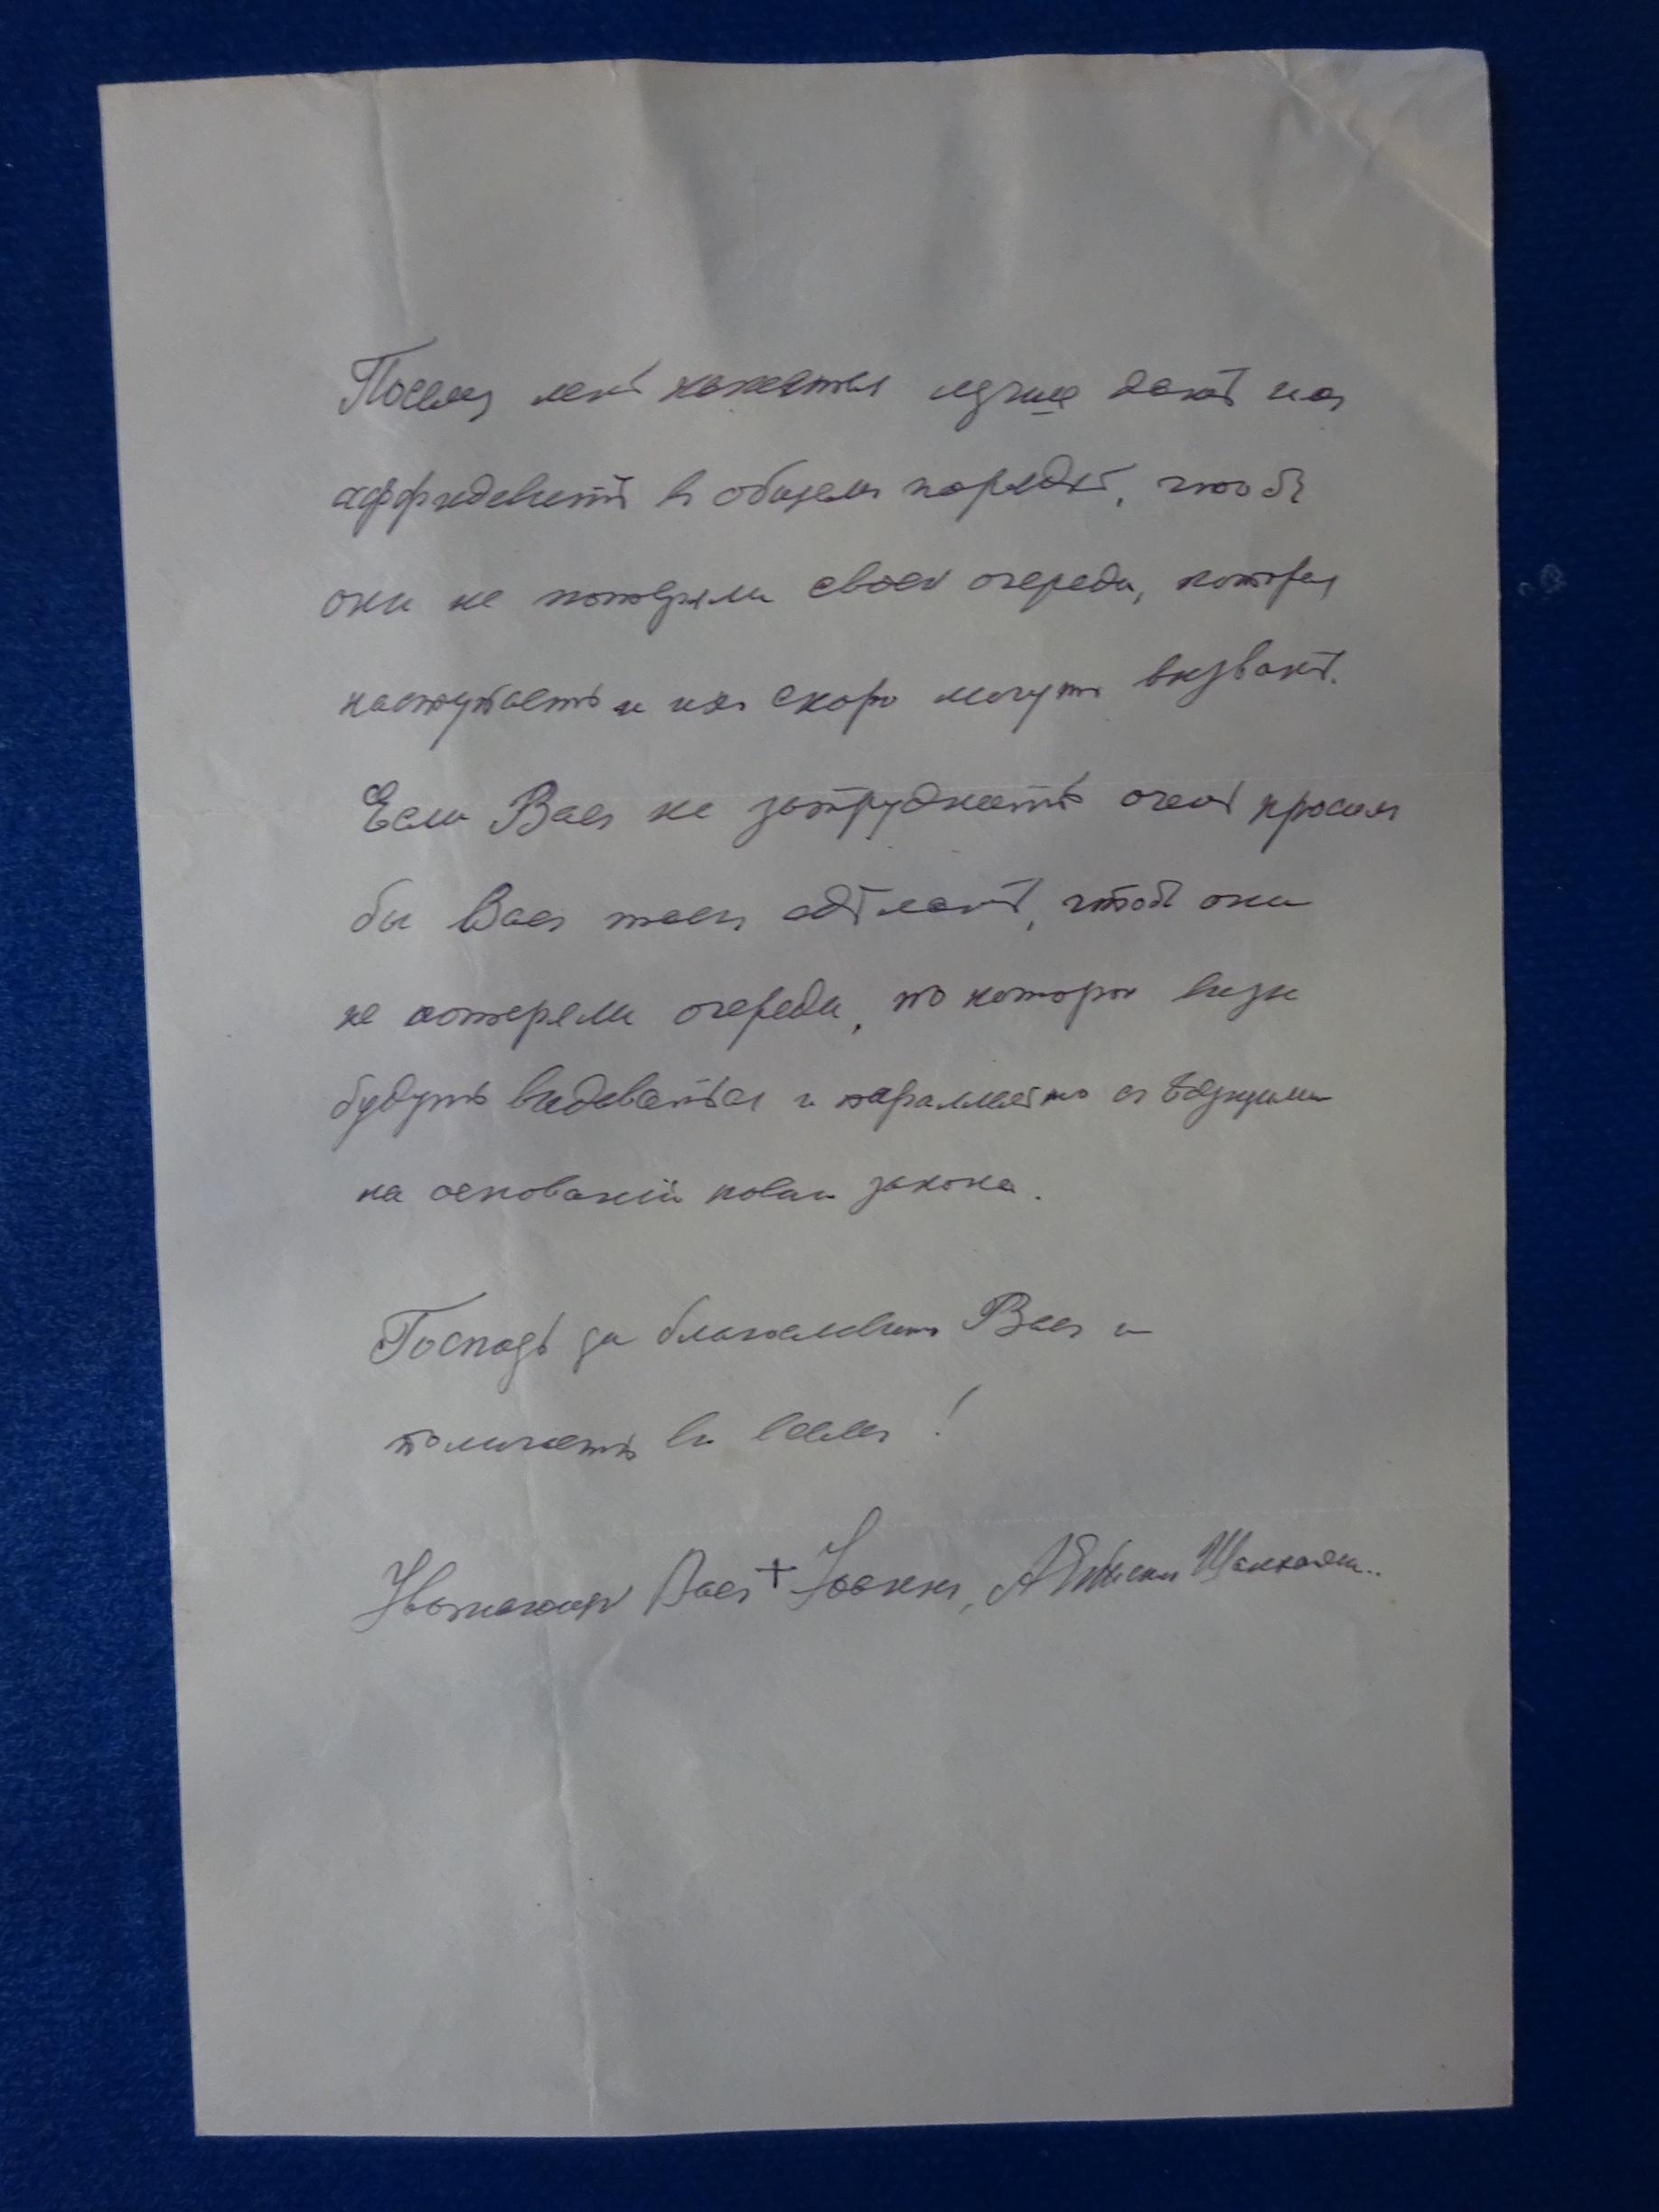 Посему мнѣ кажется лучше дать имъ
аффидевитъ в общем порядкѣ, чтобъ
они не потеряли своей очереди, которая
наступаетъ и ихъ скоро могутъ вызвать.
Если Васъ не затруднитъ очень просилъ
бы Васъ такъ сдѣлать, чтобъ они
не потеряли очереди, по которой визы
будутъ выдаваться и параллельно съ ѣдущими
на основаніи новаго закона.
Господь да благословитъ Васъ и
помогаетъ въ всемъ!
Уважающій Васъ + Іоаннъ, Епископъ Шанхайск..